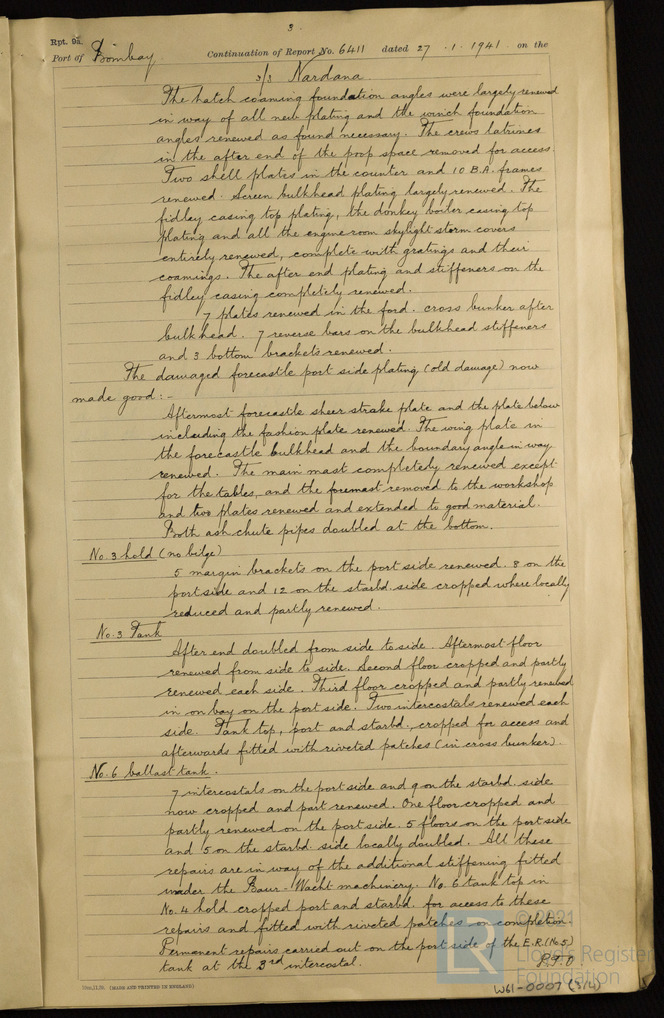 3
Rpt. 9a.
Port of Bombay Continuation of Report No. 6411 dated 27 . 1 . 1941 on the
s/s Nardana
The hatch coaming foundation angles were largely renewed
in way of all new plating and the winch foundation
angles renewed as found necessary. The crews latrines
in the after end of the poop space removed for access
Two shell plates in the counter and 10 B.A. frames
renewed. Screen bulkhead plating largely renewed. The
fidley casing top plating, the donkey boiler casing top
plating and all the engine room skylight storm covers
entirely renewed, complete with gratings and their
coamings. The after end plating and stiffeners on the
fidley casing completely renewed.
7 plates renewed in the ford. cross bunker after
bulkhead. 7 reverse bars on the bulkhead stiffeners
and 3 bottom brackets renewed.
The damaged forecastle port side plating (old damage) now
made good:-
Aftermost forecastle sheer strake plate and the plate below
including the fashion plate renewed. The wing plate in
the forecastle bulkhead and the boundary angle in way
renewed. The main mast completely renewed except
for the tables, and the foremast removed to the workshop
and two plates renewed and extended to good material.
Both ash chute pipes doubled at the bottom.
No. 3 hold (no bilge)
5 margin brackets on the port side renewed. 8 on the
port side and 12 on the starbd. side cropped where locally
reduced and partly renewed.
No. 3 Tank
After end doubled from side to side. Aftermost floor
renewed from side to side. Second floor cropped and partly
renewed each side. Third floor cropped and partly renewed
in on bay on the port side. Two intercostals renewed each
side. Tank top, port and starbd. cropped for access and
afterwards fitted with riveted patches (in cross bunker).
No. 6 ballast tank.
7 intercostals on the port side and 9 on the starbd. side
now cropped and part renewed. One floor cropped and
partly renewed on the port side. 5 floors on the port side
and 5 on the starbd. side locally doubled. All these
repairs are in way of the additional stiffening fitted
under the Baur-Wacht machinery. No. 6 tank top in
No. 4 hold cropped port and starbd. for access to these
repairs and fitted with riveted patches on completion.
Permanent repairs carried out on the port side of the E.R. (No 5)
tank at the 3rd intercostal.
P.T.O.
(MADE AND PRINTED IN ENGLAND)
W61-0007 (3/4)
LR
© 2021
Lloyd's Register
Foundation